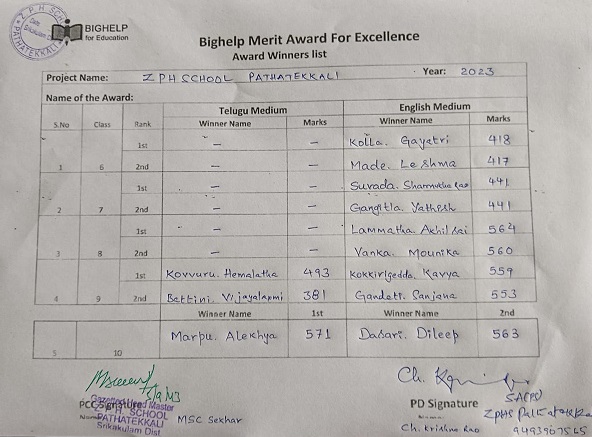 Z P H SCHOOL
PATHATEKKALI
BIGHELP
for Education
Bighelp Merit Award For Excellence
Award Winners list
Project Name: Z P H SCHOOL PATHATEKKALI Year: 2023
Name of the Award:
Telugu Medium English Medium
S.No Class Rank Winner Name Marks Winner Name Marks
1st — — Kolla. Gayatri 418
1 6 2nd — — Made. Leshma 417
1st — — Suvada. Shanmukha Rao 441
2 7 2nd — — Gangitla. Yathish 441
1st — — Lammatha Akhil Sai 564
3 8 2nd — — Vanka. Mounika 560
1st Kovvuru. Hemalatha 493 Kokkirigedda. Kavya 559
4 9 2nd Bettini. Vijayalaxmi 381 Gandeti. Sanjana 553
Winner Name 1st Winner Name 2nd
Marpu. Alekhya 571 Dasari. Dileep 563
5 10
PCC Signature
Gazetted Head Master
Z P H. SCHOOL
PATHATEKKALI
Srikakulam Dist
MSC Sekhar
PD Signature
Ch. Krishna Rao
SA(PS)